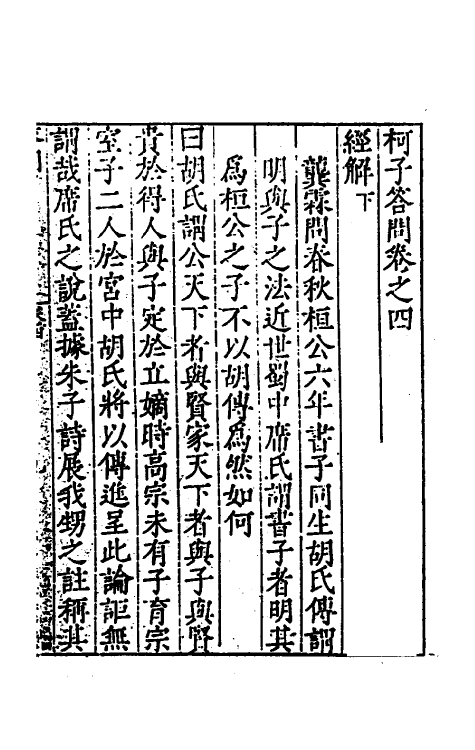 柯子答問卷之四
經解下
龔霖問春秋桓公六年書子同生胡氏傳謂
明與子之法近世蜀中席氏謂書子者明其
爲桓公之子不以胡傳爲然如何
曰胡氏謂公天下者與賢家天下者與子與賢
貴於得人與子定於立嫡時高宗未有子育宗
室子二人於宮中胡氏將以傳進呈此論詎無
謂哉席氏之說蓋據朱子詩展我甥之註稱淇